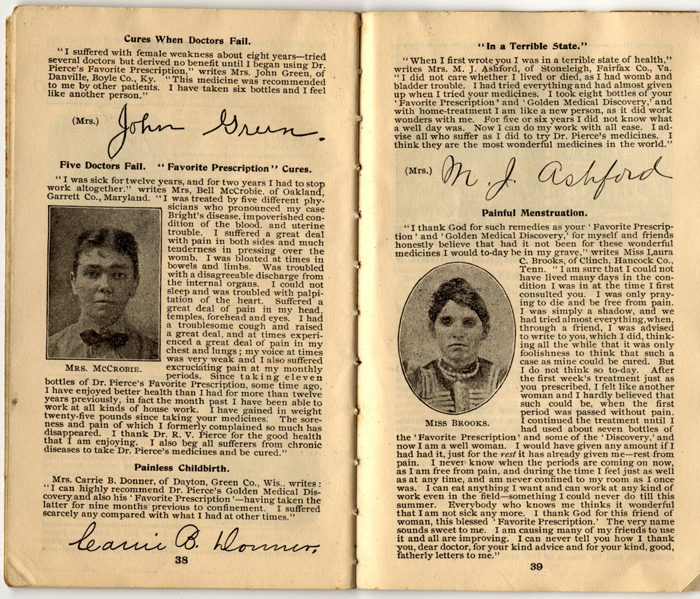 Cures When Doctors Fail.
"I suffered with female weakness about eight years—tried
several doctors but derived no benefit until I began using Dr.
Pierce's Favorite Prescription," writes Mrs. John Green, of
Danville, Boyle Co., Ky. "This medicine was recommended
to me by other patients. I have taken six bottles and I feel
like another person."
(Mrs.) John Green.
Five Doctors Fail. "Favorite Prescription" Cures.
"I was sick for twelve years, and for two years I had to stop
work altogether." writes Mrs, Bell McCrobie, of Oakland,
Garrett Co., Maryland. "I was treated by five different phy-
sicians who pronounced my case
Bright's disease, impoverished con-
dition of the blood, and uterine
trouble. I suffered a great deal
with pain in both sides and much
tenderness in pressing over the
womb. I was bloated at times in
bowels and limbs. Was troubled
with a disagreeable discharge from
the internal organs. I could not
sleep and was troubled with palpi-
tation of the heart. Suffered a
great deal of pain in my head,
temples, forehead and eyes. I had
a troublesome cough and raised
a great deal, and at times experi-
enced a great deal of pain in my
chest and lungs; my voice at times
was very weak and I also suffered
excruciating pain at my monthly
periods. Since taking eleven
bottles of Dr. Pierce's Favorite Prescription, some time ago,
I have enjoyed better health than I had for more than twelve
years previously, in fact the month past I have been able to
work at all kinds of house work. I have gained in weight
twenty-five pounds since taking your medicines. The sore-
ness and pain of which I formerly complained so much has
disappeared. I thank Dr. R. V. Pierce for the good health
that I am enjoying. I also beg all sufferers from chronic
diseases to take Dr. Pierce's medicines and be cured."
MRS. MCCROBIE.
Painless Childbirth.
Mrs. Carrie B. Donner, of Dayton, Green Co., Wis., writes:
"I can highly recommend Dr. Pierce's Golden Medical Dis-
covery and also his 'Favorite Prescription'—having taken the
latter for nine months previous to confinement. I suffered
scarcely any compared with what I had at other times."
Carrie B. Donner.
38
"In a Terrible State."
"When I first wrote you I was in a terrible state of health,"
writes Mrs. M. J. Ashford, of Stoneleigh, Fairfax Co., Va.
"I did not care whether I lived or died, as I had womb and
bladder trouble. I had tried everything and had almost given
up when I tried your medicines. I took eight bottles of your
'Favorite Prescription' and 'Golden Medical Discovery,' and
with home-treatment I am like a new person, as it did work
wonders with me. For five or six years I did not know what
a well day was. Now I can do my work with all ease. I ad-
vise all who suffer as I did to try Dr. Pierce's medicines. I
think they are the most wonderful medicines in the world."
(Mrs.) M. J. Ashford
Painful Menstruation.
"I thank God for such remedies as your 'Favorite Prescrip-
tion' and 'Golden Medical Discovery,' for myself and friends
honestly believe that had it not been for these wonderful
medicines I would to-day be in my grave," writes Miss Laura
C. Brooks, of Clinch, Hancock Co.,
Tenn. "I am sure that I could not
have lived many days in the con-
dition I was in at the time I first
consulted you. I was only pray-
ing to die and be free from pain.
I was simply a shadow, and we
had tried almost everything, when,
through a friend, I was advised
to write to you, which I did, think-
ing all the while that it was only
foolishness to think that such a
case as mine could be cured. But
I do not think so to-day. After
the first week's treatment just as
you prescribed, I felt like another
woman and I hardly believed that
such could be, when the first
period was passed without pain.
I continued the treatment until I
had used about seven bottles of
the 'Favorite Prescription' and some of the 'Discovery,' and
now I am a well woman. I would have given any amount if I
had had it, just for the rest it has already given me—rest from
pain. I never know when the periods are coming on now,
as I am free from pain, and during the time I feel just as well
as at any time, and am never confined to my room as I once
was. I can eat anything I want and can work at any kind of
work even in the field—something I could never do till this
summer. Everybody who knows me thinks it wonderful
that I am not sick any more. I thank God for this friend of
woman, this blessed 'Favorite Prescription.' The very name
sounds sweet to me. I am causing many of my friends to use
it and all are improving. I can never tell you how I thank
you, dear doctor, for your kind advice and for your kind, good,
fatherly letters to me."
MISS BROOKS.
39